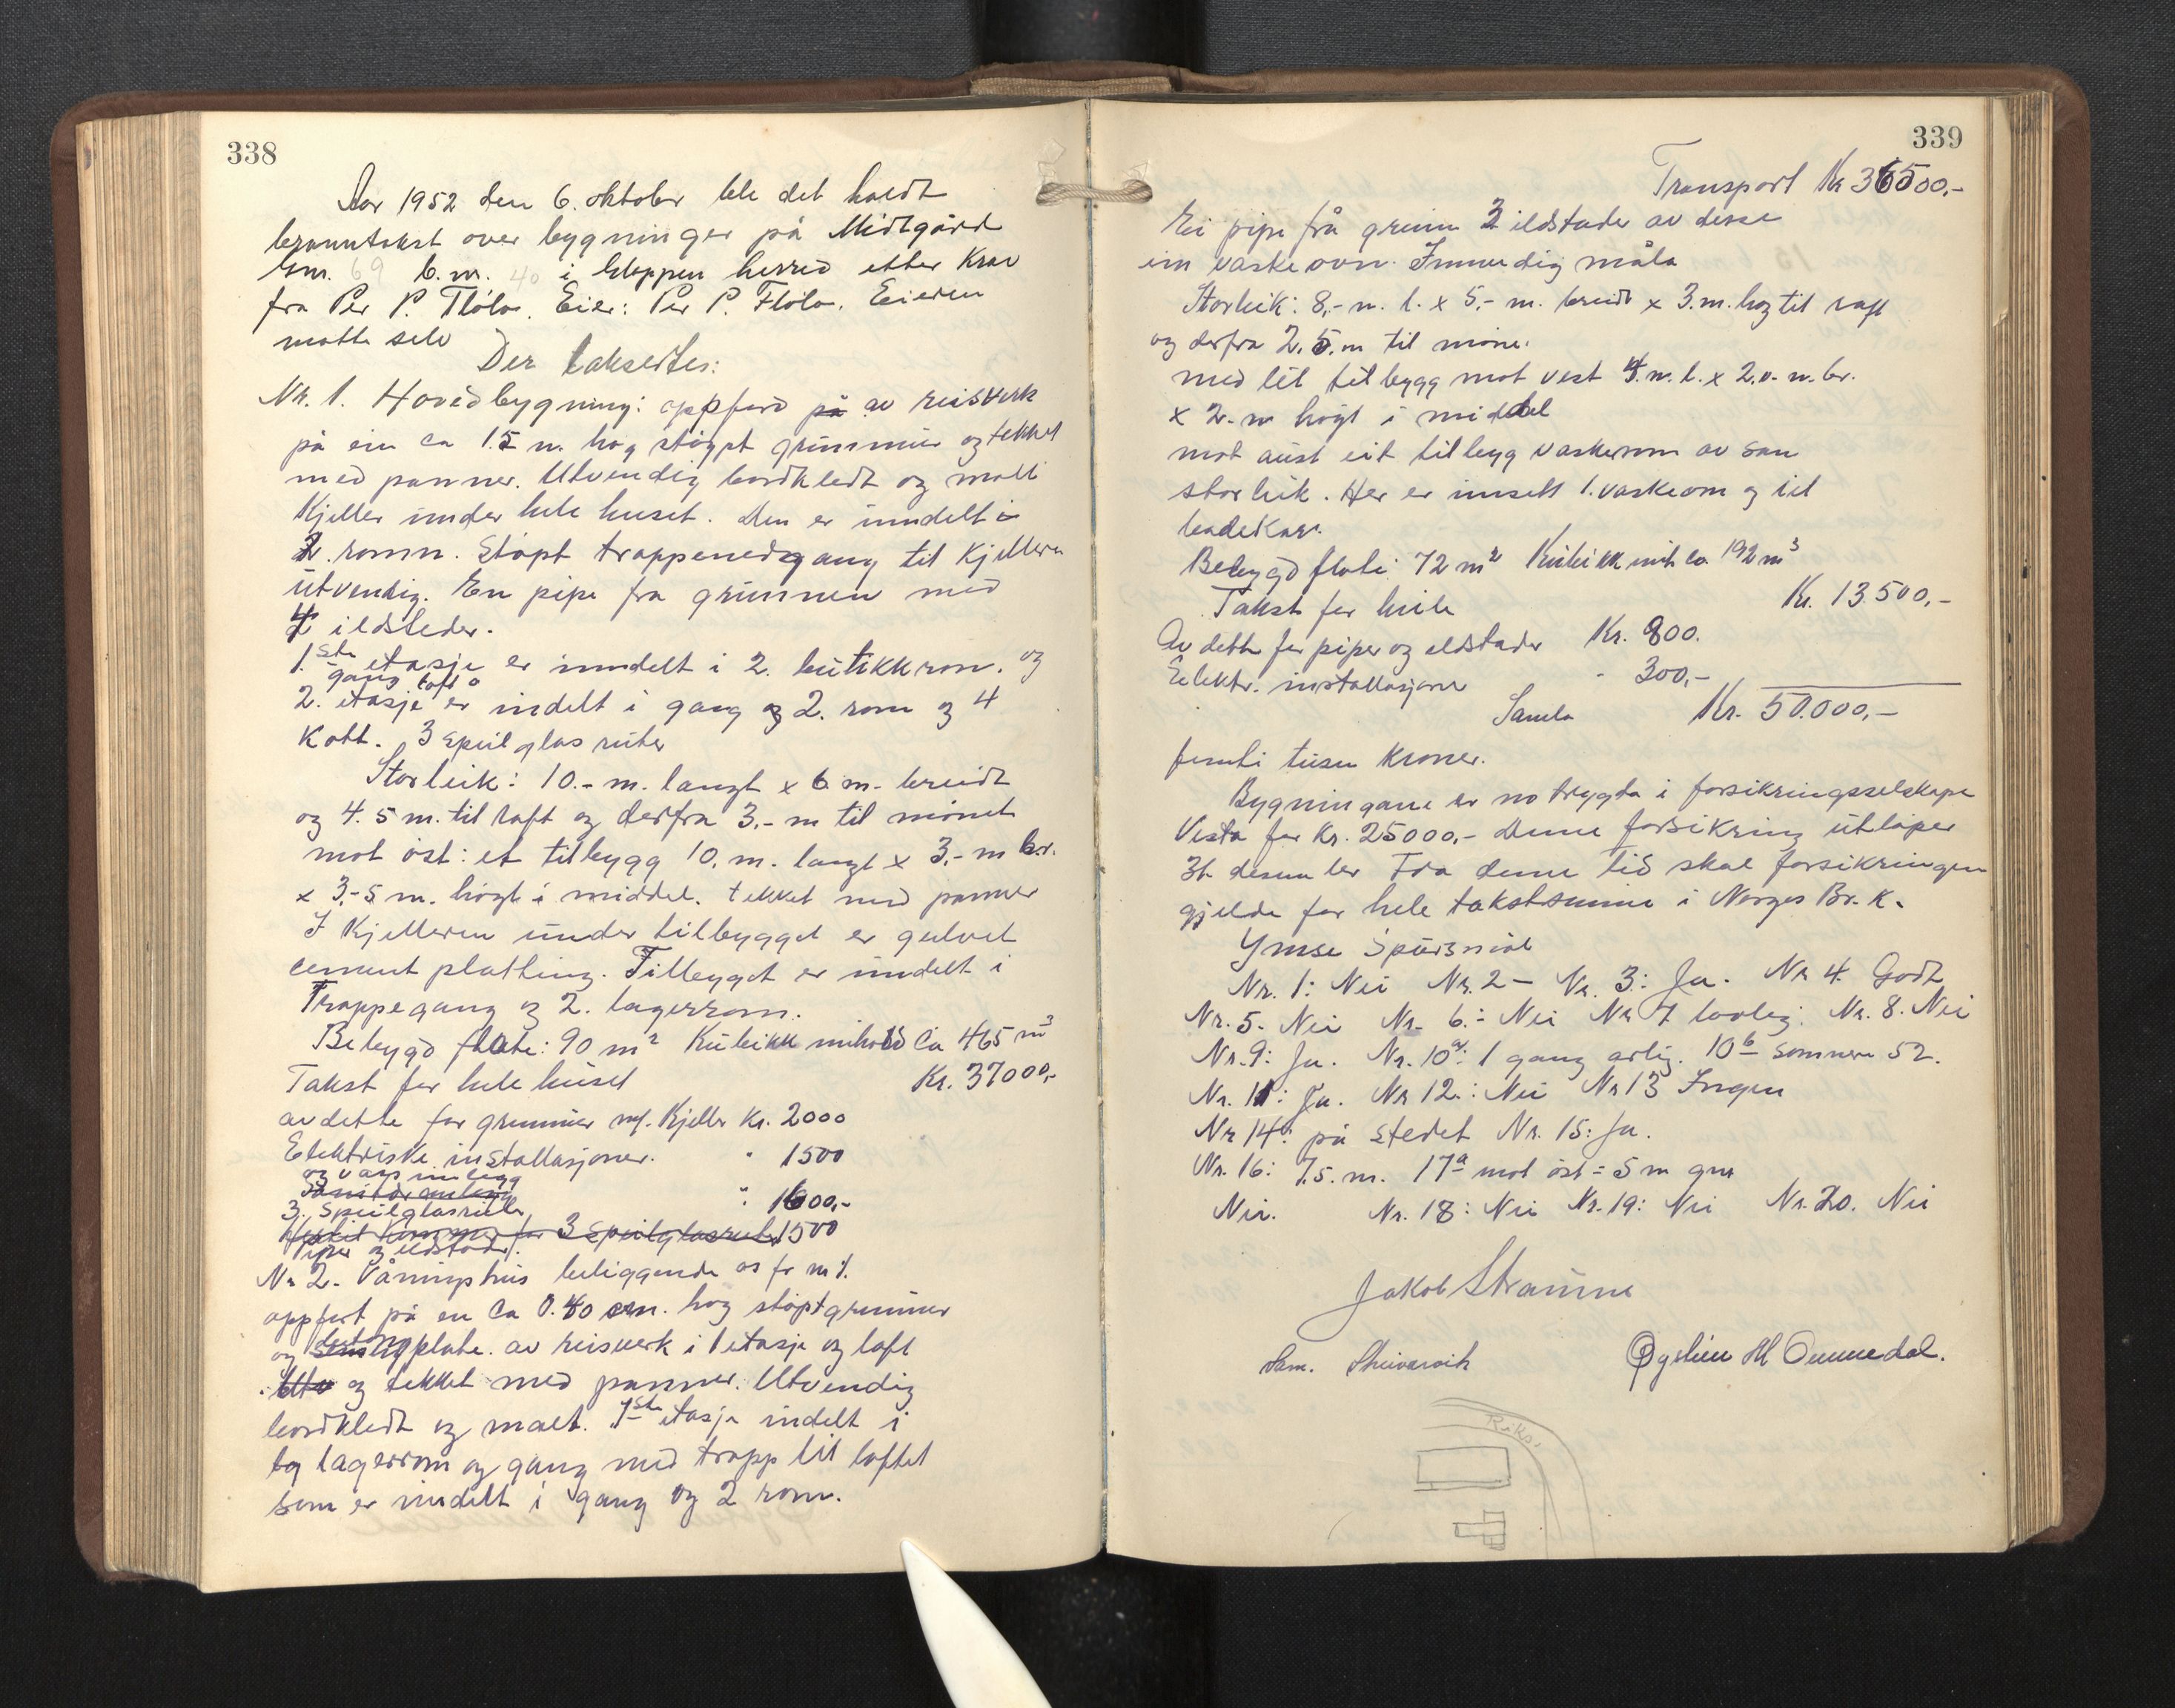 338
Aar 1952 den 6. oktober ble det holdt
branntakst over bygninger på Midtgård
Gnr. 69 b.nr. 40 i Gloppen herred etter Krav
fra Per P. Flølo. Eier: Per P. Flølo. Eieren
møtte selv
Der taksertes:
Nr. 1. Hovedbygning: oppførd på av reisverk
på ein ca 1.5 m. høg støypt grunnmur og tekket
med panner. Utvendig bordkledt og malt
Kjeller under hele huset. Den er inndelt i
2. romm. Støpt trappenedgang til Kjelleren
utvendig. En pipe fra grunnen med
4 ildsteder.
1.ste etasje er inndelt i 2. butikkrom. og
gang loft o
2. etasje er indelt i gang og 2. rom og 4
Kott. 3 speilglas ruter
Storleik: 10.- m. langt x 6 m. breidt
og 4.5 m. til raft og derfra 3.- m til mønet
mot øst: et tilbygg 10. m. langt x 3,- m br.
x 3.-5 m. høgt i middel. tekket med panner
I Kjelleren under tilbygget er gulvet
cement platting. Tilbygget er inndelt i
Trappegang og 2. lagerrom.
Bebygd flate: 90 m² Kubikk innhold ca 465 m³
Takst for hele huset Kr. 37000,-
av dette for grunnmur m/. Kjeller Kr. 2000
Elektriske installasjoner. " 1500
og vass innlegg
3. speilglasruter " 1600,-
3 speilglasruter 1500
Piper og ildsteder.
Nr 2. Våningshus beliggende as for nr 1.
oppført på en ca 0.40 cm. høg støpt grunnmur
og plate. av reisverk i 1 etasje og loft
Utv og tekket med panner. Utvendig
bordkledt og malt. 1ste etasje indelt i
to lagerrom og gang med trapp til loftet
som er inndelt i gang og 2 rom.
339
Transport Kr 36500,-
Ei pipe frå grunn 3 ildstader av desse
ein vaskeovn. Innvendig måla
Storleik: 8,- m. l. x 5,- m. breidt x 3. m. høg til raft
og derfra 2.5. m til møne.
med lit tilbygg mot vest 4. m. l. x 2.0. m. br.
x 2.- m høgt i middel
mot aust eit tilbygg vaskerom av sam
storleik. Her er innsett 1. vaskeovn og eit
badekar.
Bebygd flate: 72 m² Kubikk innh ca 192 m³
Takst for heile Kr. 13.500,-
Av dette for piper og eldstader Kr. 800.
Elektr. installasjoner - 300,-
Samla Kr. 50.000,-
femti tusen kroner.
Bygningane er no trygda i forsikringsselskape
Vesta for Kr. 25000,- Denne forsikring utløper
31. desember Fra denne tid skal forsikringen
gjelde for hele takstsumme i Norges Br. K.
Ymse Spørsmål
Nr. 1: Nei Nr. 2 - Nr. 3: Ja. Nr 4. Godt
Nr. 5. Nei Nr. 6.: Nei Nr 7. lovleg. Nr. 8. Nei
Nr. 9: Ja. Nr. 10a: 1 gang årlig. 10b sommeren 52.
Nr. 11: Ja. Nr 12.: Nei Nr 13 Ingen
Nr 14: på stedet Nr. 15: Ja.
Nr. 16: 7.5. m. 17a mot øst = 5 m gnr
Nei. Nr. 18: Nei Nr. 19: Nei Nr. 20. Nei
Jakob Straume
Sam. Øystein M Ommedal.
Riks.